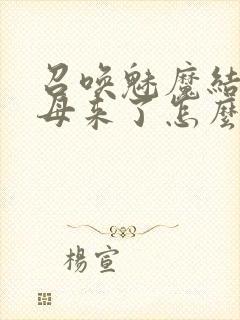 召喚魅魔結
母来了怎麼
楊宣